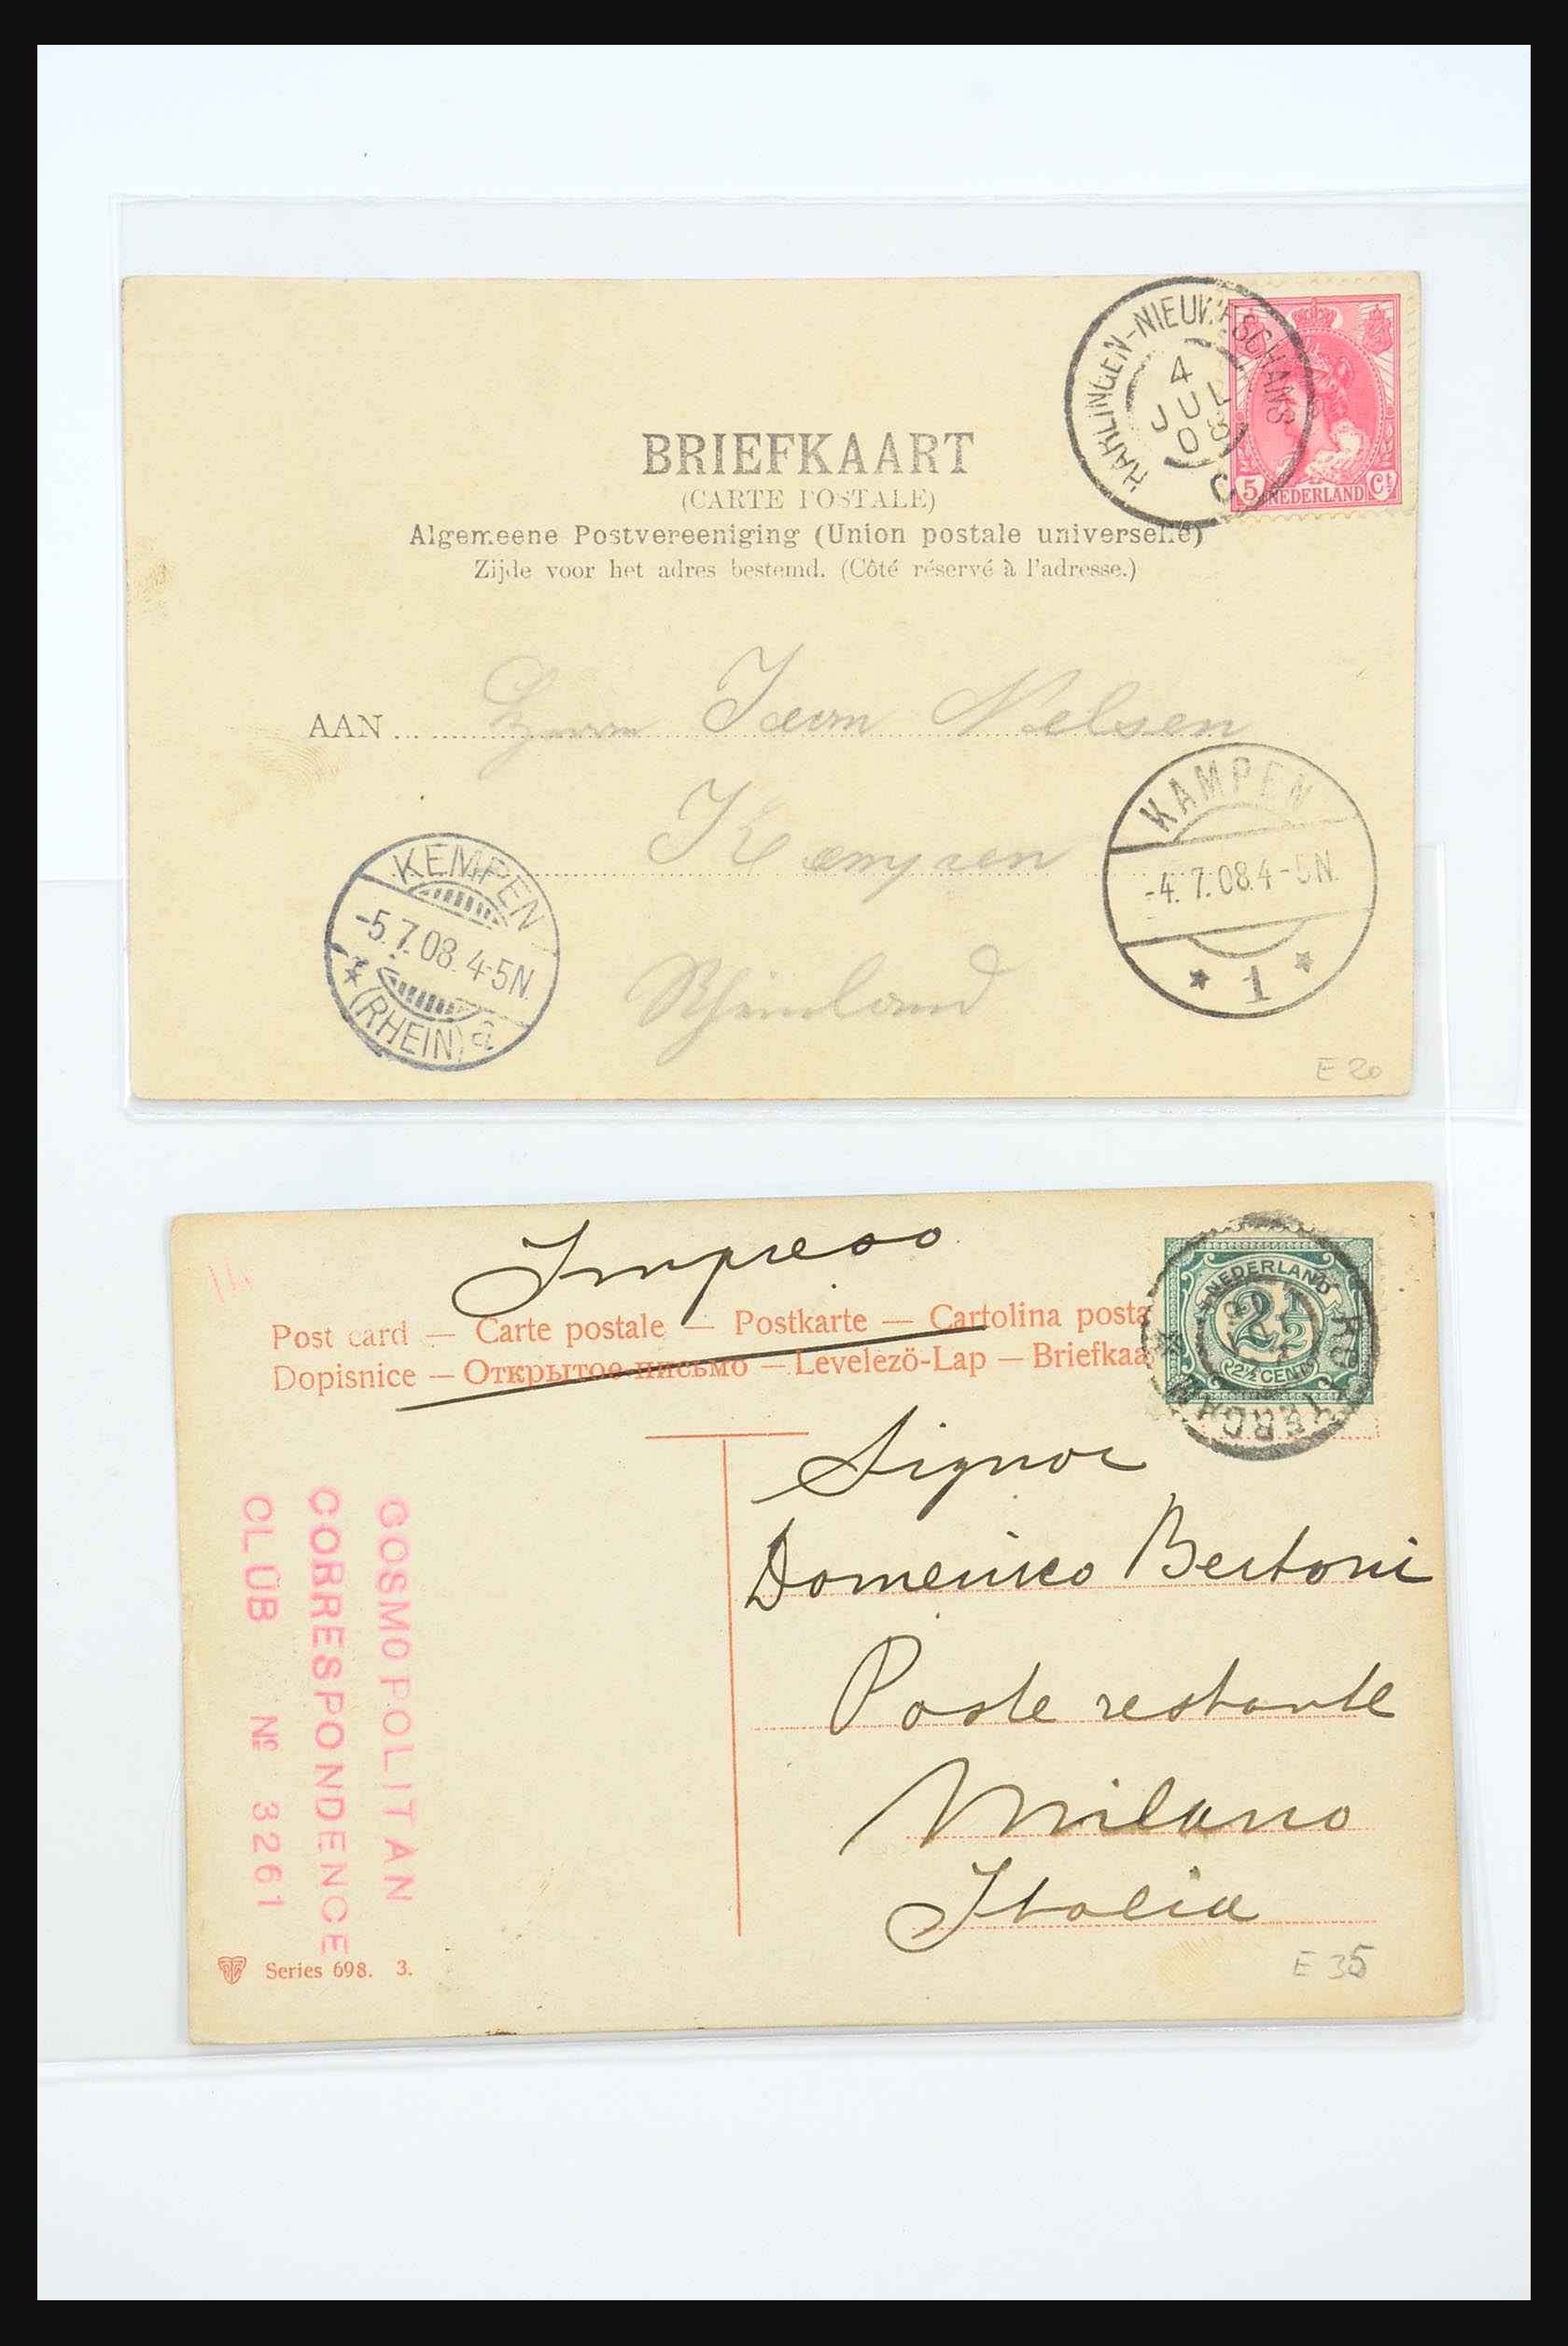 HARLINGEN-NIEUWESCHANS
4
JUL
08
C
5 NEDERLAND Ct
BRIEFKAART
(CARTE POSTALE)
Algemeene Postvereeniging (Union postale universelle)
Zijde voor het adres bestemd. (Côté réservé à l'adresse.)
AAN Herrn Jean Nelsen
KAMPEN
-4.7.08.4-5N.
* 1 *
Kempen
KEMPEN
-5.7.08.4-5N.
* (RHEIN) a
Rheinland
E 20
Impreso
NEDERLAND
2 1/2
2½ CENT
ROTTERDAM
14
Post card — Carte postale — Postkarte — Cartolina posta
Dopisnice — Открытое письмо — Levelezö-Lap — Briefkaa
Signor
Domenico Bertoni
Poste restante
Milano
Italia
COSMOPOLITAN
CORRESPONDENCE
CLUB Nº 3261
Series 698. 3.
E 35